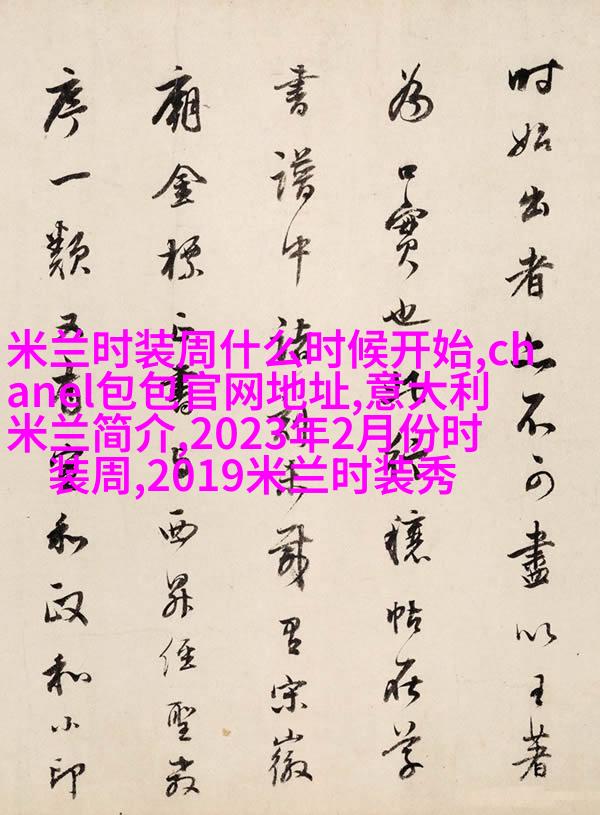 米兰时装周什么时候开始,ch
anel包包官网地址,意大利
米兰简介,2023年2月份时
装周,2019米兰时装秀
时始出者不可盡以王著
為口實也穰帖在学
書譜中諸宋徽
廟金標書与西昇经聖教
序一類宣和政和小印